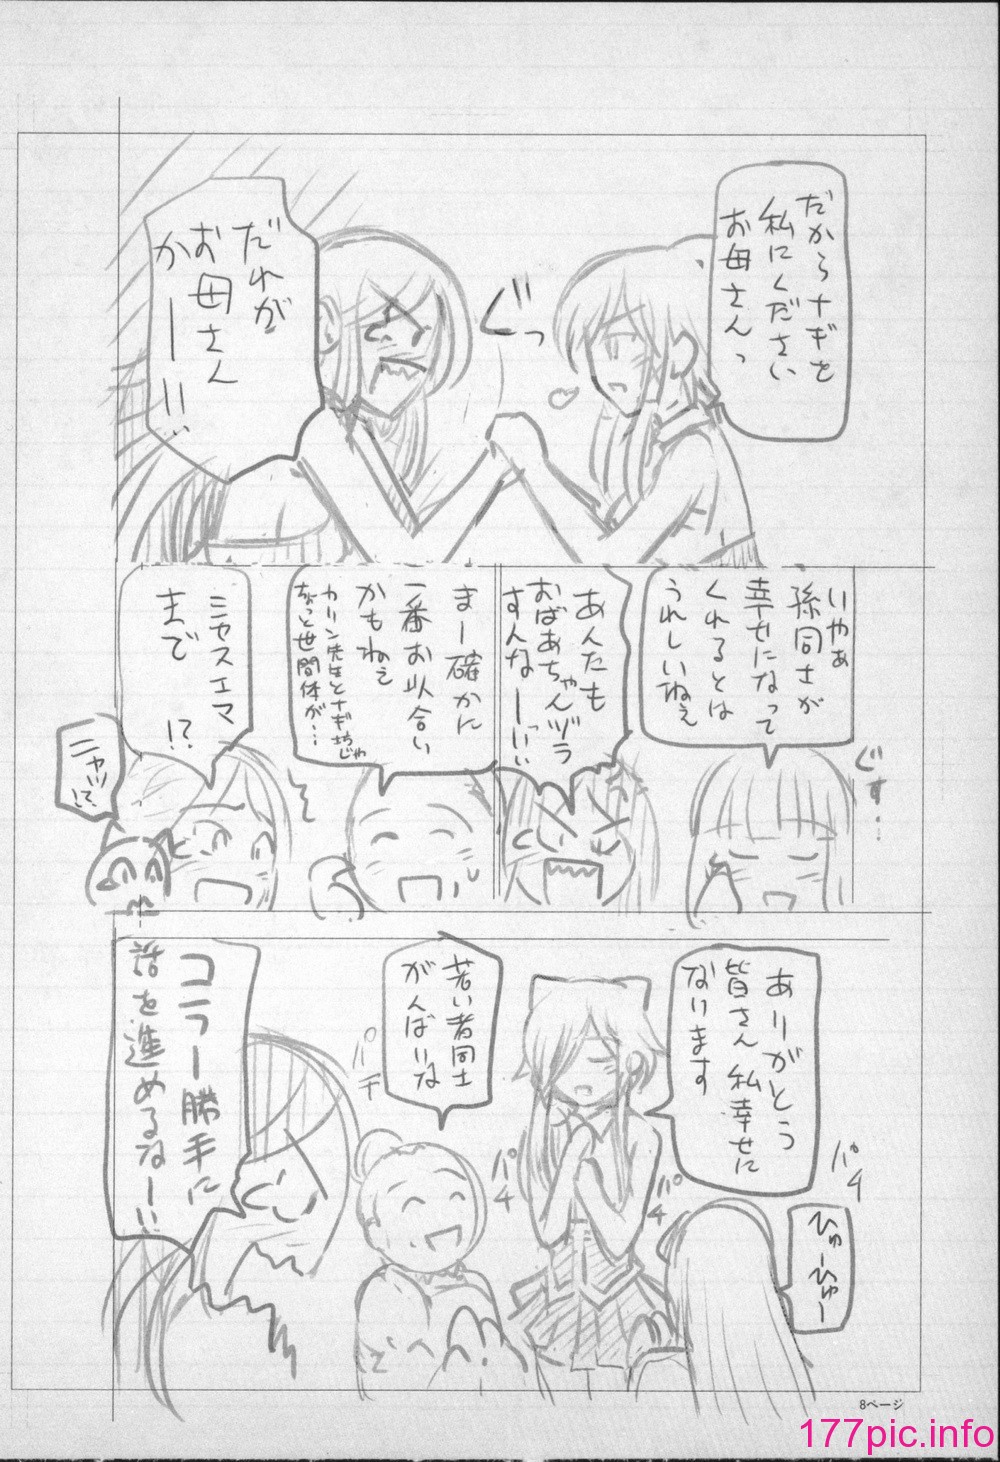 だからナギを
私にください
お母さんっ
ぐっ
だれが
お母さん
かーー!!
いやぁ
孫同士が
幸せになって
くれるとは
うれしいねぇ
ぐす…
あんたも
おばあちゃんヅラ
すんなーっ!!
まー確かに
一番お似合い
かもねぇ
カリン先生とナギ
ちょっと世間体が…
ミヤスエマ
まで
!?
ニャッ!?
ありがとう
皆さん 私幸せに
なります
若い者同士
がんばいな
パチ
パチ
パチ
パチ
ひゅーひゅー
コラー勝手に
話を進めるなー!!
8ページ
177pic.info